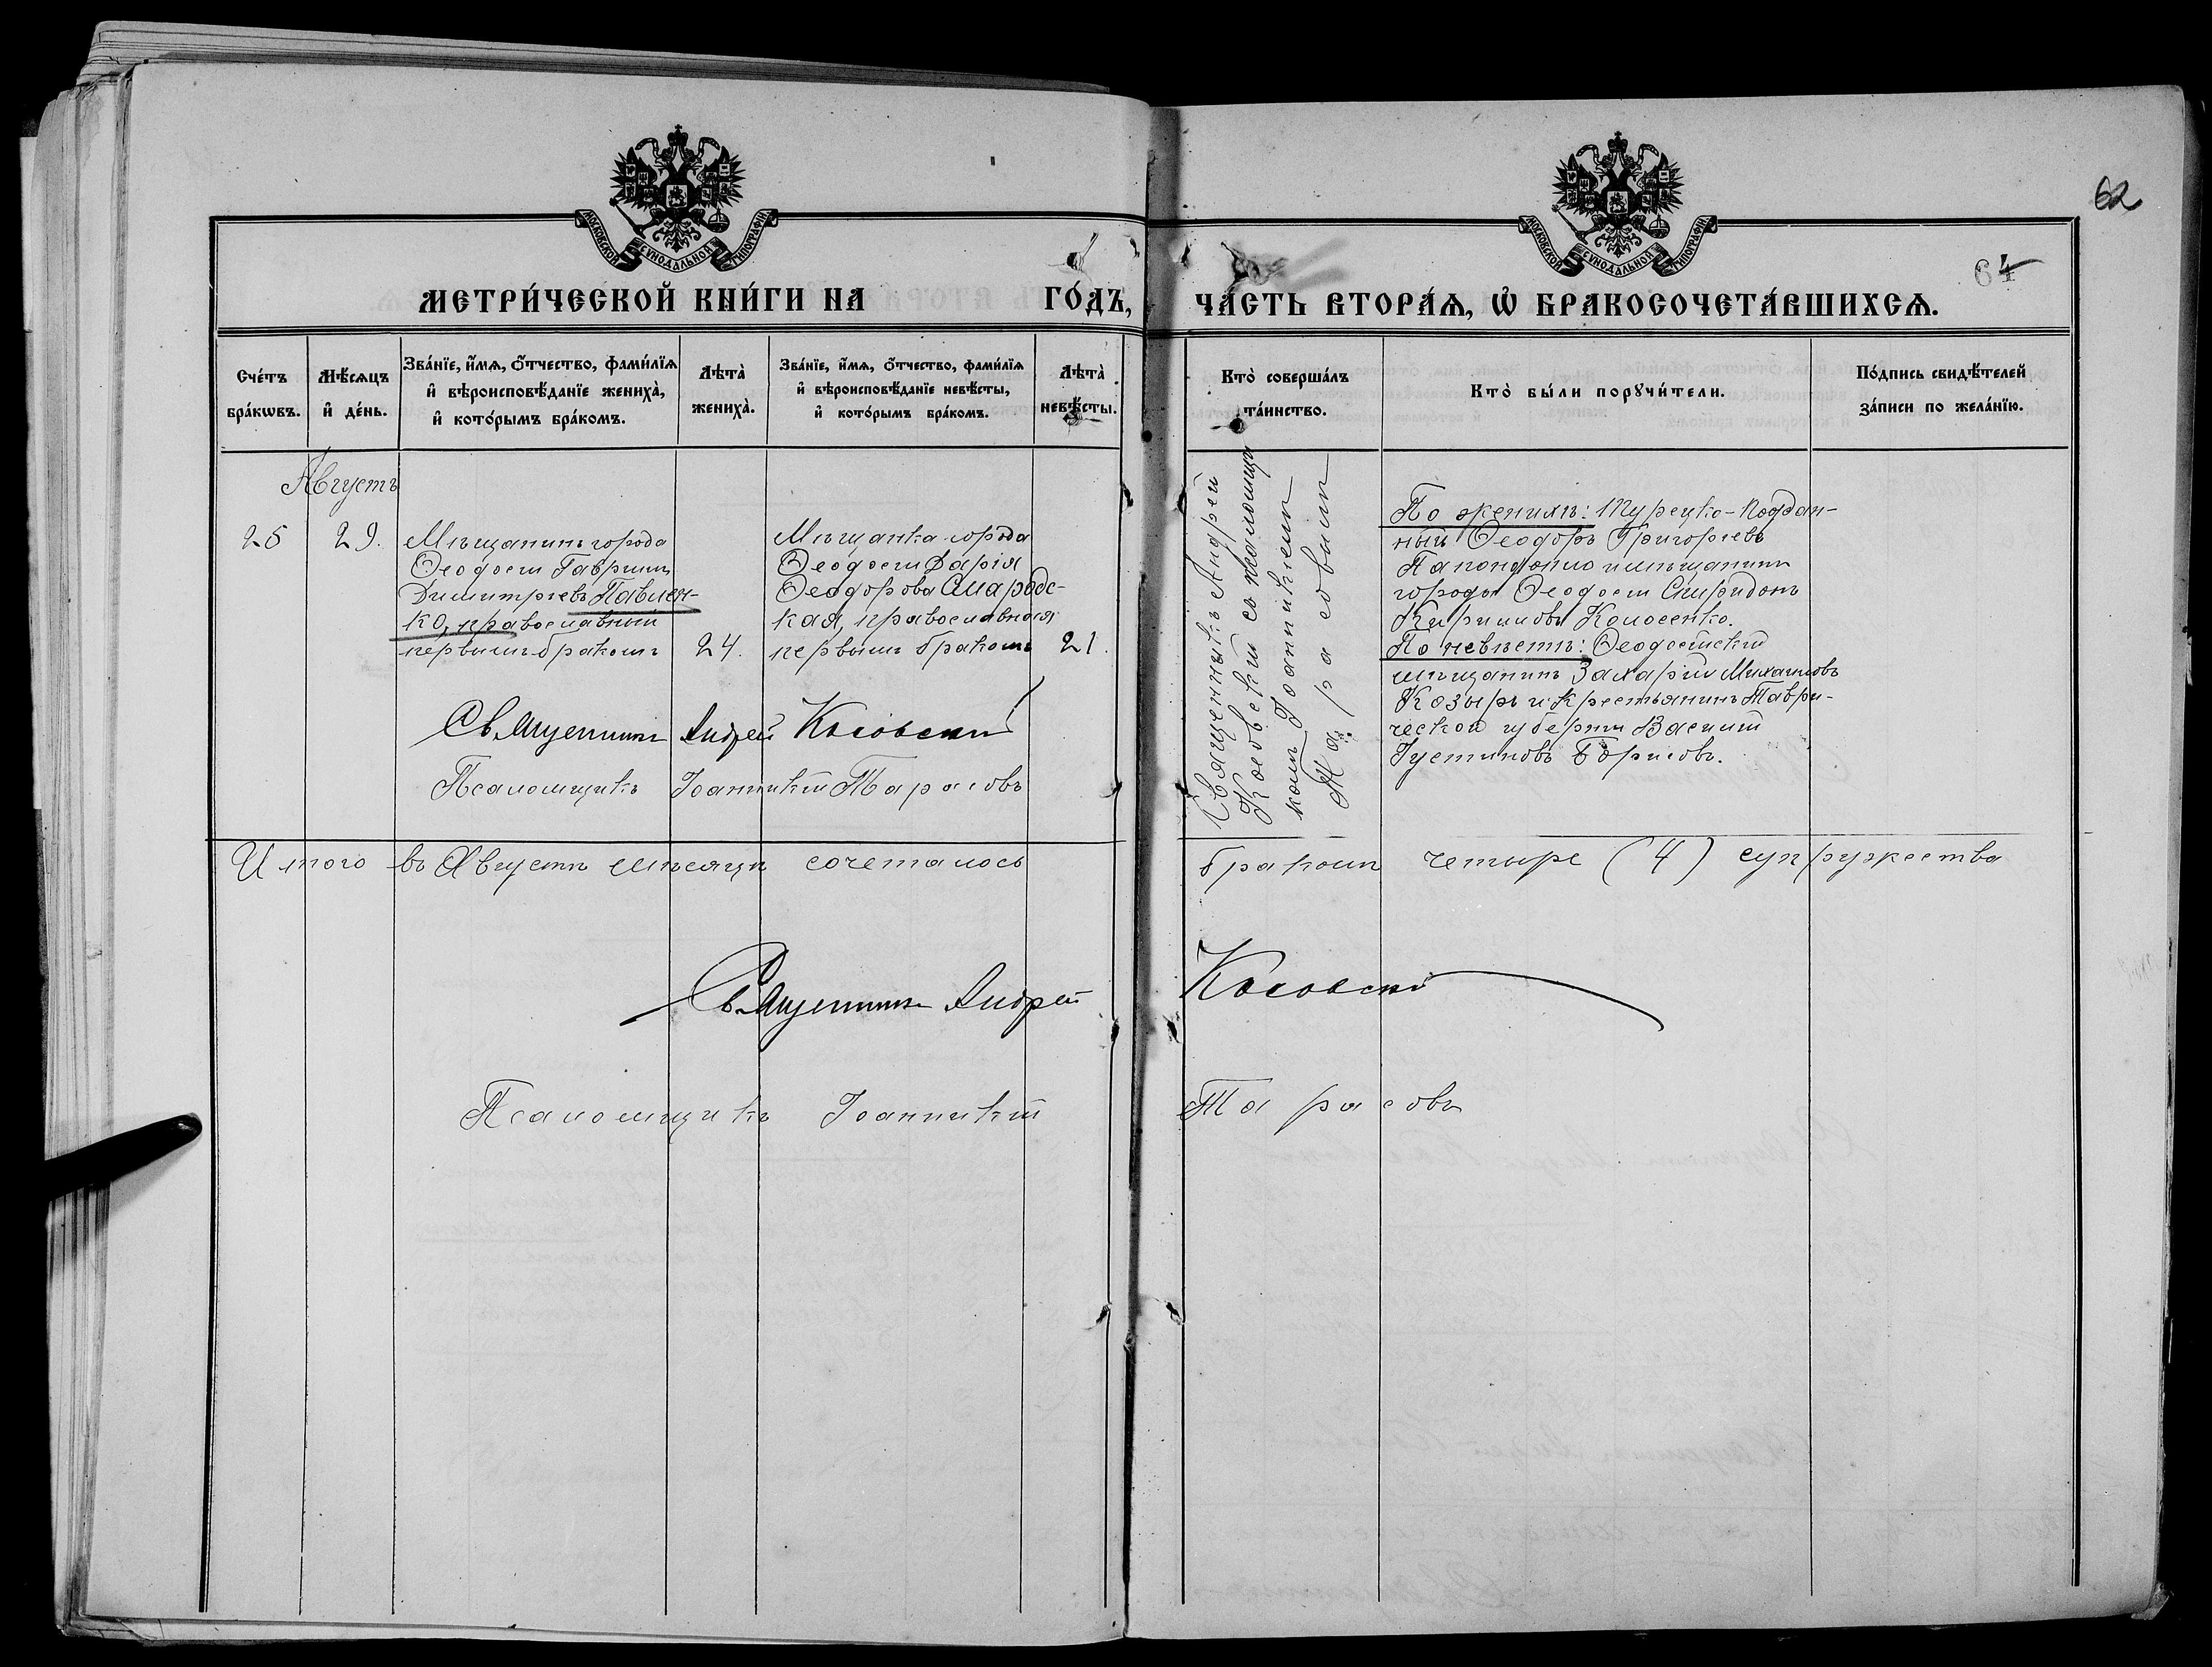 62
64
МОСКОВСКОЙ СѴНОДАЛЬНОЙ ТИПОГРАФІИ
МОСКОВСКОЙ СѴНОДАЛЬНОЙ ТИПОГРАФІИ
МЕТРИ́ЧЕСКОЙ КНИ́ГИ НА ГО́ДЪ,
ЧА́СТЬ ВТОРА́Ѧ, Ѡ҆ БРАКОСОЧЕТА́ВШИХСѦ.
Сче́тъ бра́кѡвъ.
Мѣ́сѧцъ и҆ де́нь.
Зва́нїе, и҆́мѧ, ѻ҆́тчество, фами́лїѧ и҆ вѣроисповѣ́данїе жениха̀, и҆ кото́рымъ бра́комъ.
Лѣта̀ жениха̀.
Зва́нїе, и҆́мѧ, ѻ҆́тчество, фами́лїѧ и҆ вѣроисповѣ́данїе невѣ́сты, и҆ кото́рымъ бра́комъ.
Лѣта̀ невѣ́сты.
Кто̀ соверша́лъ та́инство.
Кто̀ бы́ли порꙋчи́тели.
По́дпись свидѣ́телей за́писи по жела́нїю.
Августъ
25
29.
Мѣщанинъ города
Ѳеодосіи Гавріилъ
Димитріевъ Павлен-
ко, православный
первымъ бракомъ
24.
Мѣщанка города
Ѳеодосіи Дарія
Ѳеодорова Смародс-
кая, православная
первымъ бракомъ
21.
Священникъ Андрей
Косовскій съ псаломщи-
комъ Іоанникіемъ
Тарасовымъ
По женихѣ: Турецко-поддан-
ный Ѳеодоръ Григорьевъ
и мѣщанинъ
города Ѳеодосіи Спиридонъ
Кирилловъ Колосенко.
По невѣстѣ: Ѳеодосійскій
мѣщанинъ Захарій Михайловъ
Козырь и крестьянинъ Таври-
ческой губерніи Василій
Іустиновъ Борисовъ.
Священникъ Андрей Косовскій
Псаломщикъ Іоанникій Тарасовъ
Итого въ Августѣ мѣсяцѣ сочеталось бракомъ четыре (4) супружества
Священникъ Андрей Косовскій
Псаломщикъ Іоанникій Тарасовъ